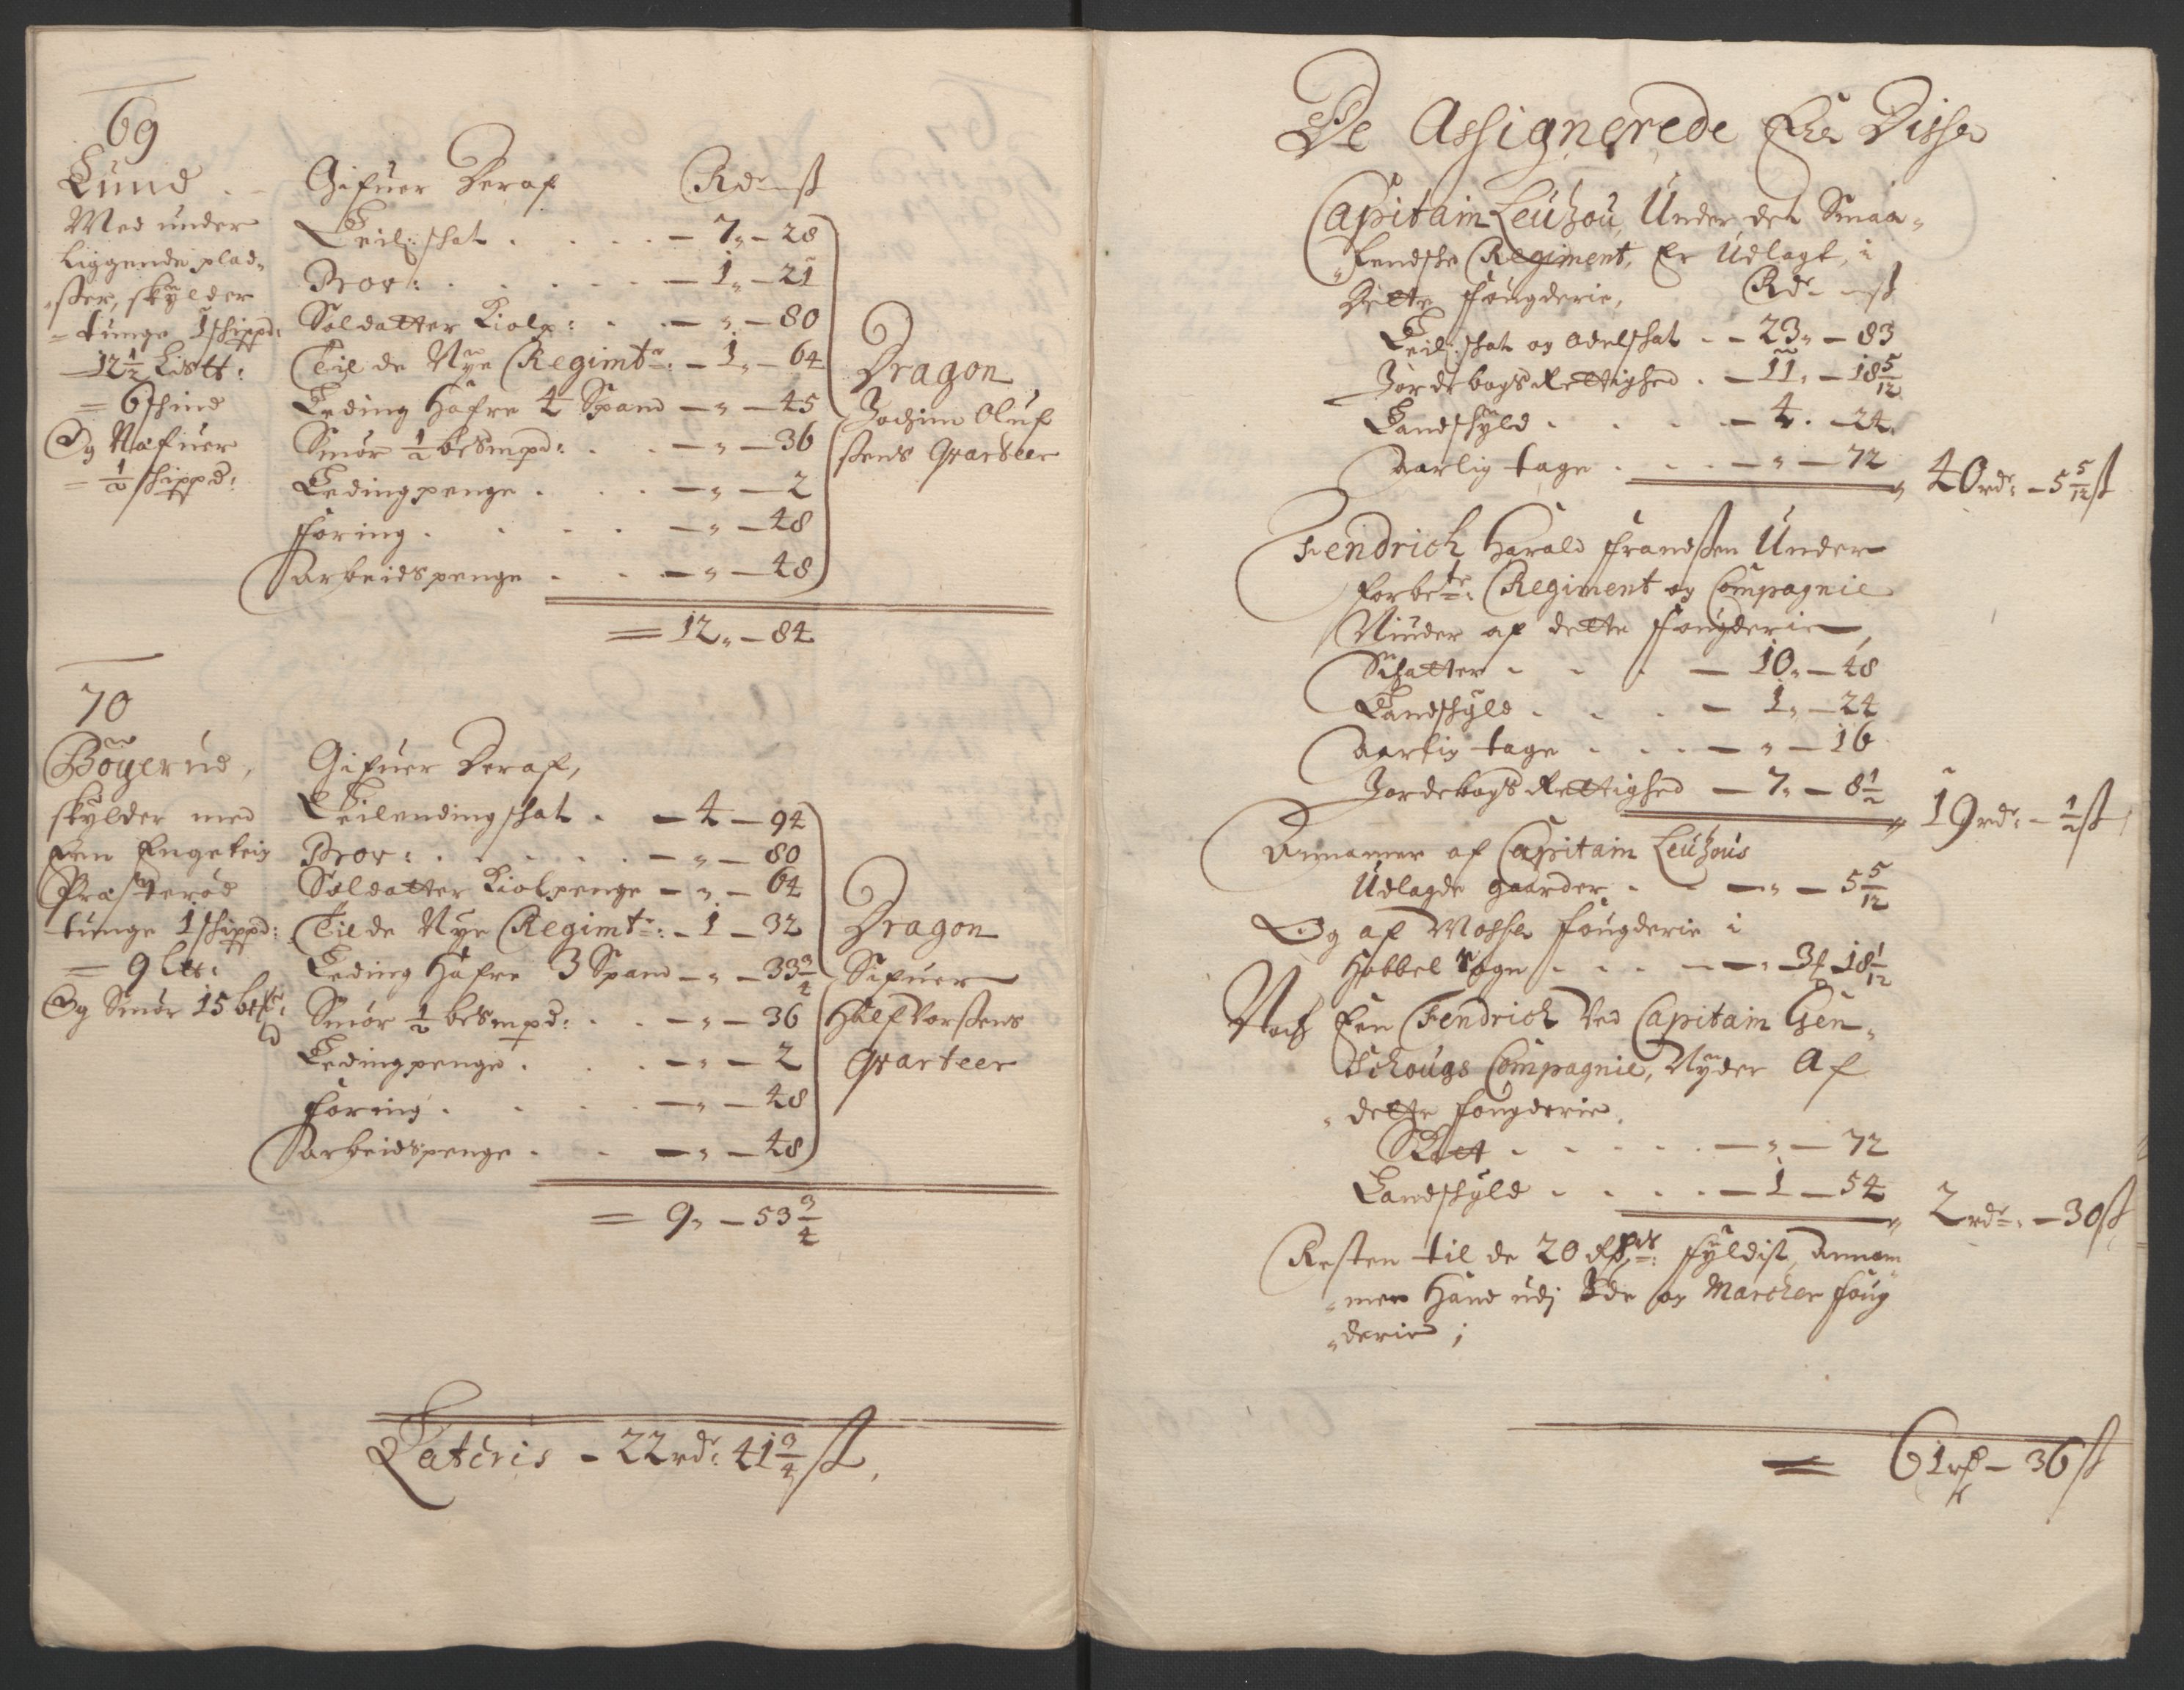 69
Lund
Med under
liggende plad¬
¬tzer, skÿlder
= tunge 1 shippd:
12½ Listt:
= 6 shind
Og Nafuer
= ½ shippd:
Gifuer Deraf Rdr ß
Leil: shat - 7 - 28
Prov: - 1 - 21
Soldatter Kiolp: - " - 80
Til de Nÿe Regimtr: - 1 - 64
Leding Hafre 4 Spand - " - 45
Smør ½ besmpd: - " - 36
Ledingpenge - " - 2
foring - " - 48
Arbeidspenge - " - 48
Dragon
Jochim Oluf
ßens Qvarteer
= 12 - 84
70
Böÿerud,
skÿlder med
Een Engeteig
Præsterød
tunge 1 shippd:
= 9 Ltt:
Og Smør 15
Gifuer Deraf,
Leilendingshat - 4 - 94
Prov: - " - 80
Soldatter Kiolpenge - " - 64
Til de Nÿe Regimtr: - 1 - 32
Leding Hafre 3 Spand - " - 33¾
Smør ½ besmpd: - " - 36
Ledingpenge - " - 2
foring - " - 48
Arbeidspenge - " - 48
Dragon
Sifuer
Halfvorßens
Qvarteer
= 9 - 53¾
Lateris - 22 rdr: 41¾ ß,
De Assignerede Er Disse
Capitain Leutzou, Under det Smaa¬
¬lendshe Regiment, Er Udlagt, i
Dette fougderie, Rdr ß
Leil: shat og Odelshat - 23 - 83
Jordebogs Rettighed - 11 - 18 5/12
Landshÿld - 4 - 24
Aarlig tage - " - 72
40 rdr: - 5 5/12 ß
Fendrich Harald frandßen Under
forbete: Regiment og Compagnie
Niuder af dette fougderie,
Schatter - 10 - 48
Landshÿld - 1 - 24
Aarlig tage - " - 16
Jordebogs Rettighed - 7 - 8½
19 rdr: - ½ ß
Annamer af Capitain Leutzous
Udlagde gaarder - " - 5 5/12
Og af Mosse fougderie i
Hobbel Sogn - 18 1/12
Noch Een Fendrich Ved Capitain Gen¬
Schougs Compagnie, Nÿder Af
dette fougderie,
Skat - " - 72
Landshÿld - 1 - 54
2 rdr: - 30 ß
Resten til de 20 fÿldist, annam¬
¬mer Hand udj Ide og Marcker foug
¬derie;
= 61 rdr - 36 ß